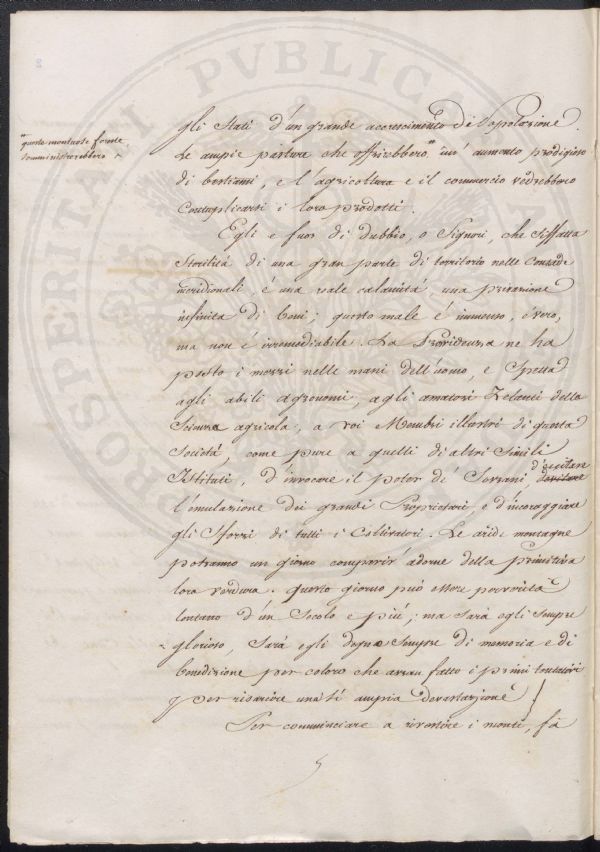 PROSPERITATI PUBLICAE
queste montuose foreste
somministrerebbero
gli Stati d'un grande accrescimento di Popolazione.
Le ampie pasture che offrirebbero un' aumento prodigioso
di bestiami, e l'agricoltura e il commercio vedrebbero
i loro prodotti.
Egli e fuor di dubbio, o Signori, che siffatta
Sterilità di una gran parte di territorio nelle Contrade
meridionali é una reale calamità, una privazione
infinita di beni; questo male é immenso, é vero,
ma non é irremediabile. La Providenza ne ha
posto i mezzi nelle mani dell'uomo, e Spetta
agli abili agronomi, agli amatori Zelanti della
Scienza agricola, a voi Membri illustri di questa
Società, come pure a quelli di altri simili
Istituti, d'invocare il poter de' Sovrani, d'eccitare
l'emulazione dei grandi Proprietari, e d'incoraggiare
gli Sforzi di tutti i Coltivatori. Le aride montagne
potranno un giorno comparir' adorne della primitiva
loro verdura. questo giorno può essere
lontano d'un Secolo e più; ma sarà egli Sempre
glorioso, Sarà egli degno Sempre di memoria e di
benedizione per coloro che avran fatto i primi tentativi
per risarcire una sì ampia devastazione!
Per cominciare a rivestire i monti, fà